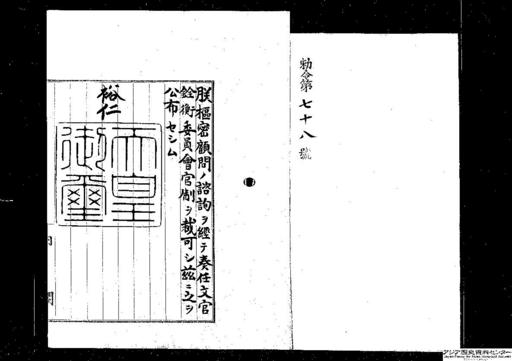 勅令第七十八號
朕樞密顧問ノ諮詢ヲ經テ奏任文官
銓衡委員會官制ヲ裁可シ茲ニ之ヲ
公布セシム
裕仁
天皇
御璽
内閣
アジア歴史資料センター